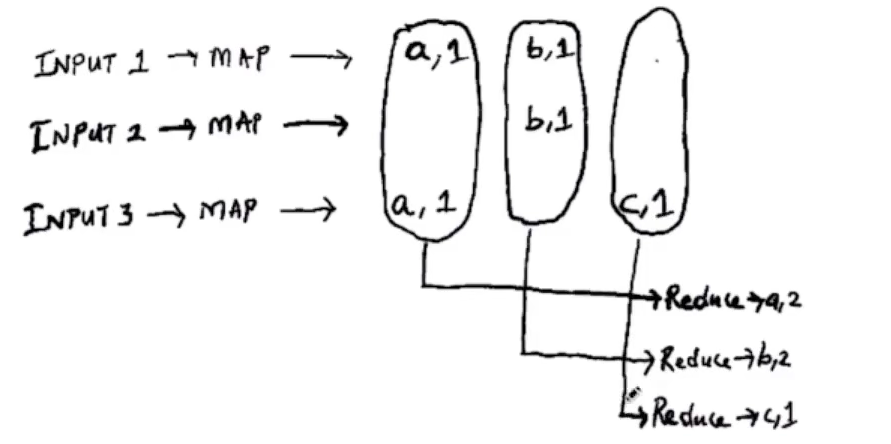 INPUT 1 → MAP → a,1 b,1
INPUT 2 → MAP → b,1
INPUT 3 → MAP → a,1 c,1
Reduce → a,2
Reduce → b,2
Reduce → c,1